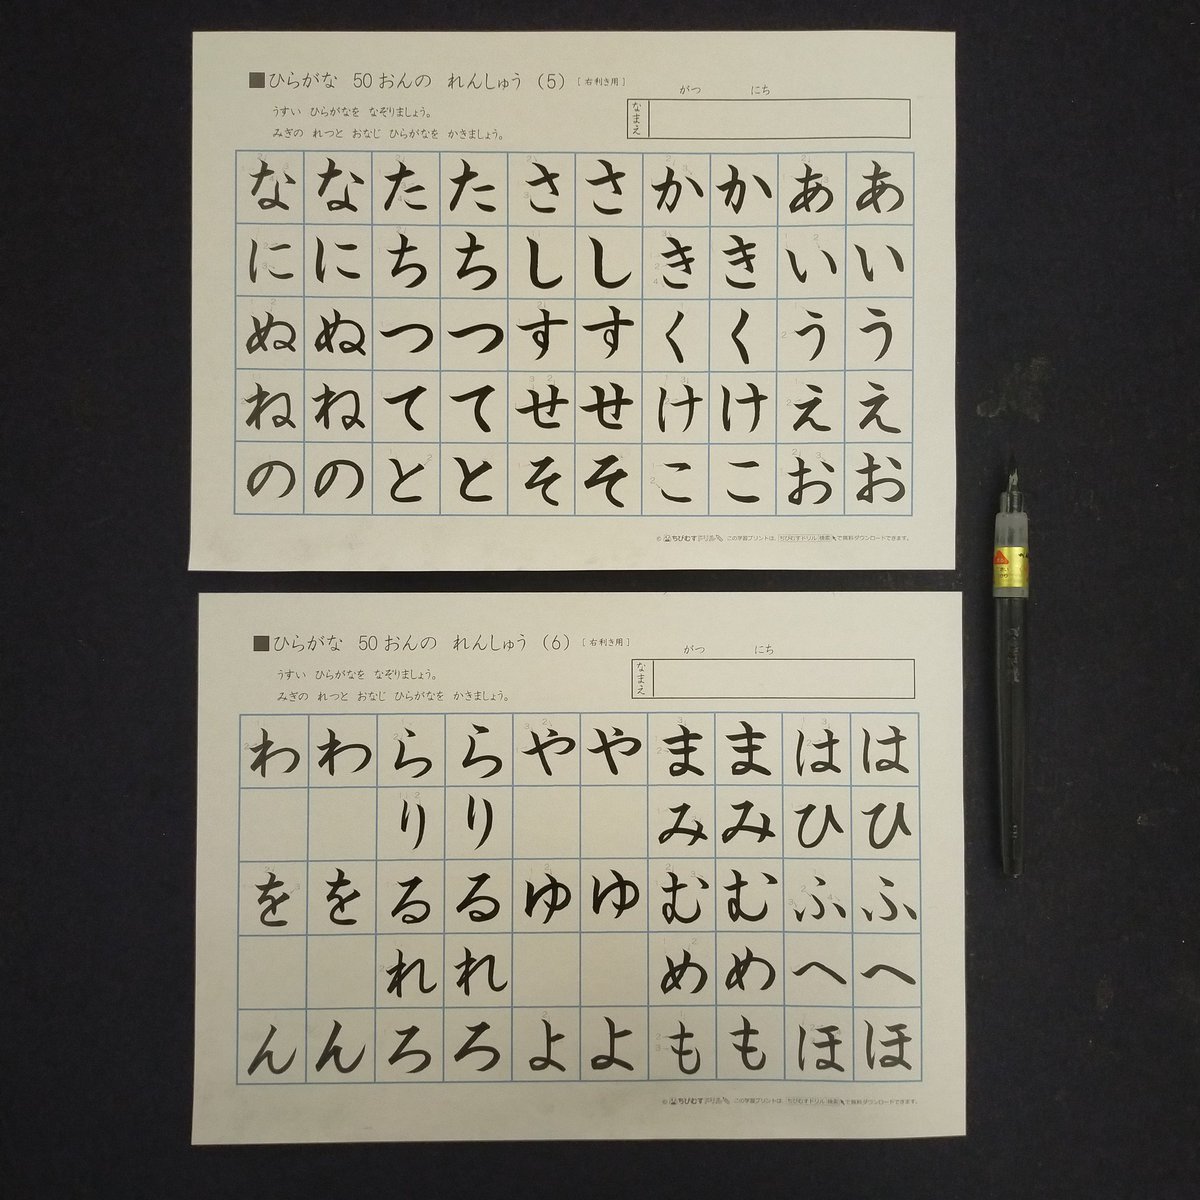 ■ひらがな 50おんの れんしゅう (5) [右利き用]
がつ にち
うすい ひらがなを なぞりましょう。
みぎの れつと おなじ ひらがなを かきましょう。
なまえ
な な た た さ さ か か あ あ
に に ち ち し し き き い い
ぬ ぬ つ つ す す く く う う
ね ね て て せ せ け け え え
の の と と そ そ こ こ お お
© ちびむすドリル この学習プリントは、ちびむすドリル 検索 で無料ダウンロードできます。
■ひらがな 50おんの れんしゅう (6) [右利き用]
がつ にち
うすい ひらがなを なぞりましょう。
みぎの れつと おなじ ひらがなを かきましょう。
なまえ
わ わ ら ら や や ま ま は は
り り み み ひ ひ
を を る る ゆ ゆ む む ふ ふ
れ れ め め へ へ
ん ん ろ ろ よ よ も も ほ ほ
© ちびむすドリル この学習プリントは、ちびむすドリル 検索 で無料ダウンロードできます。